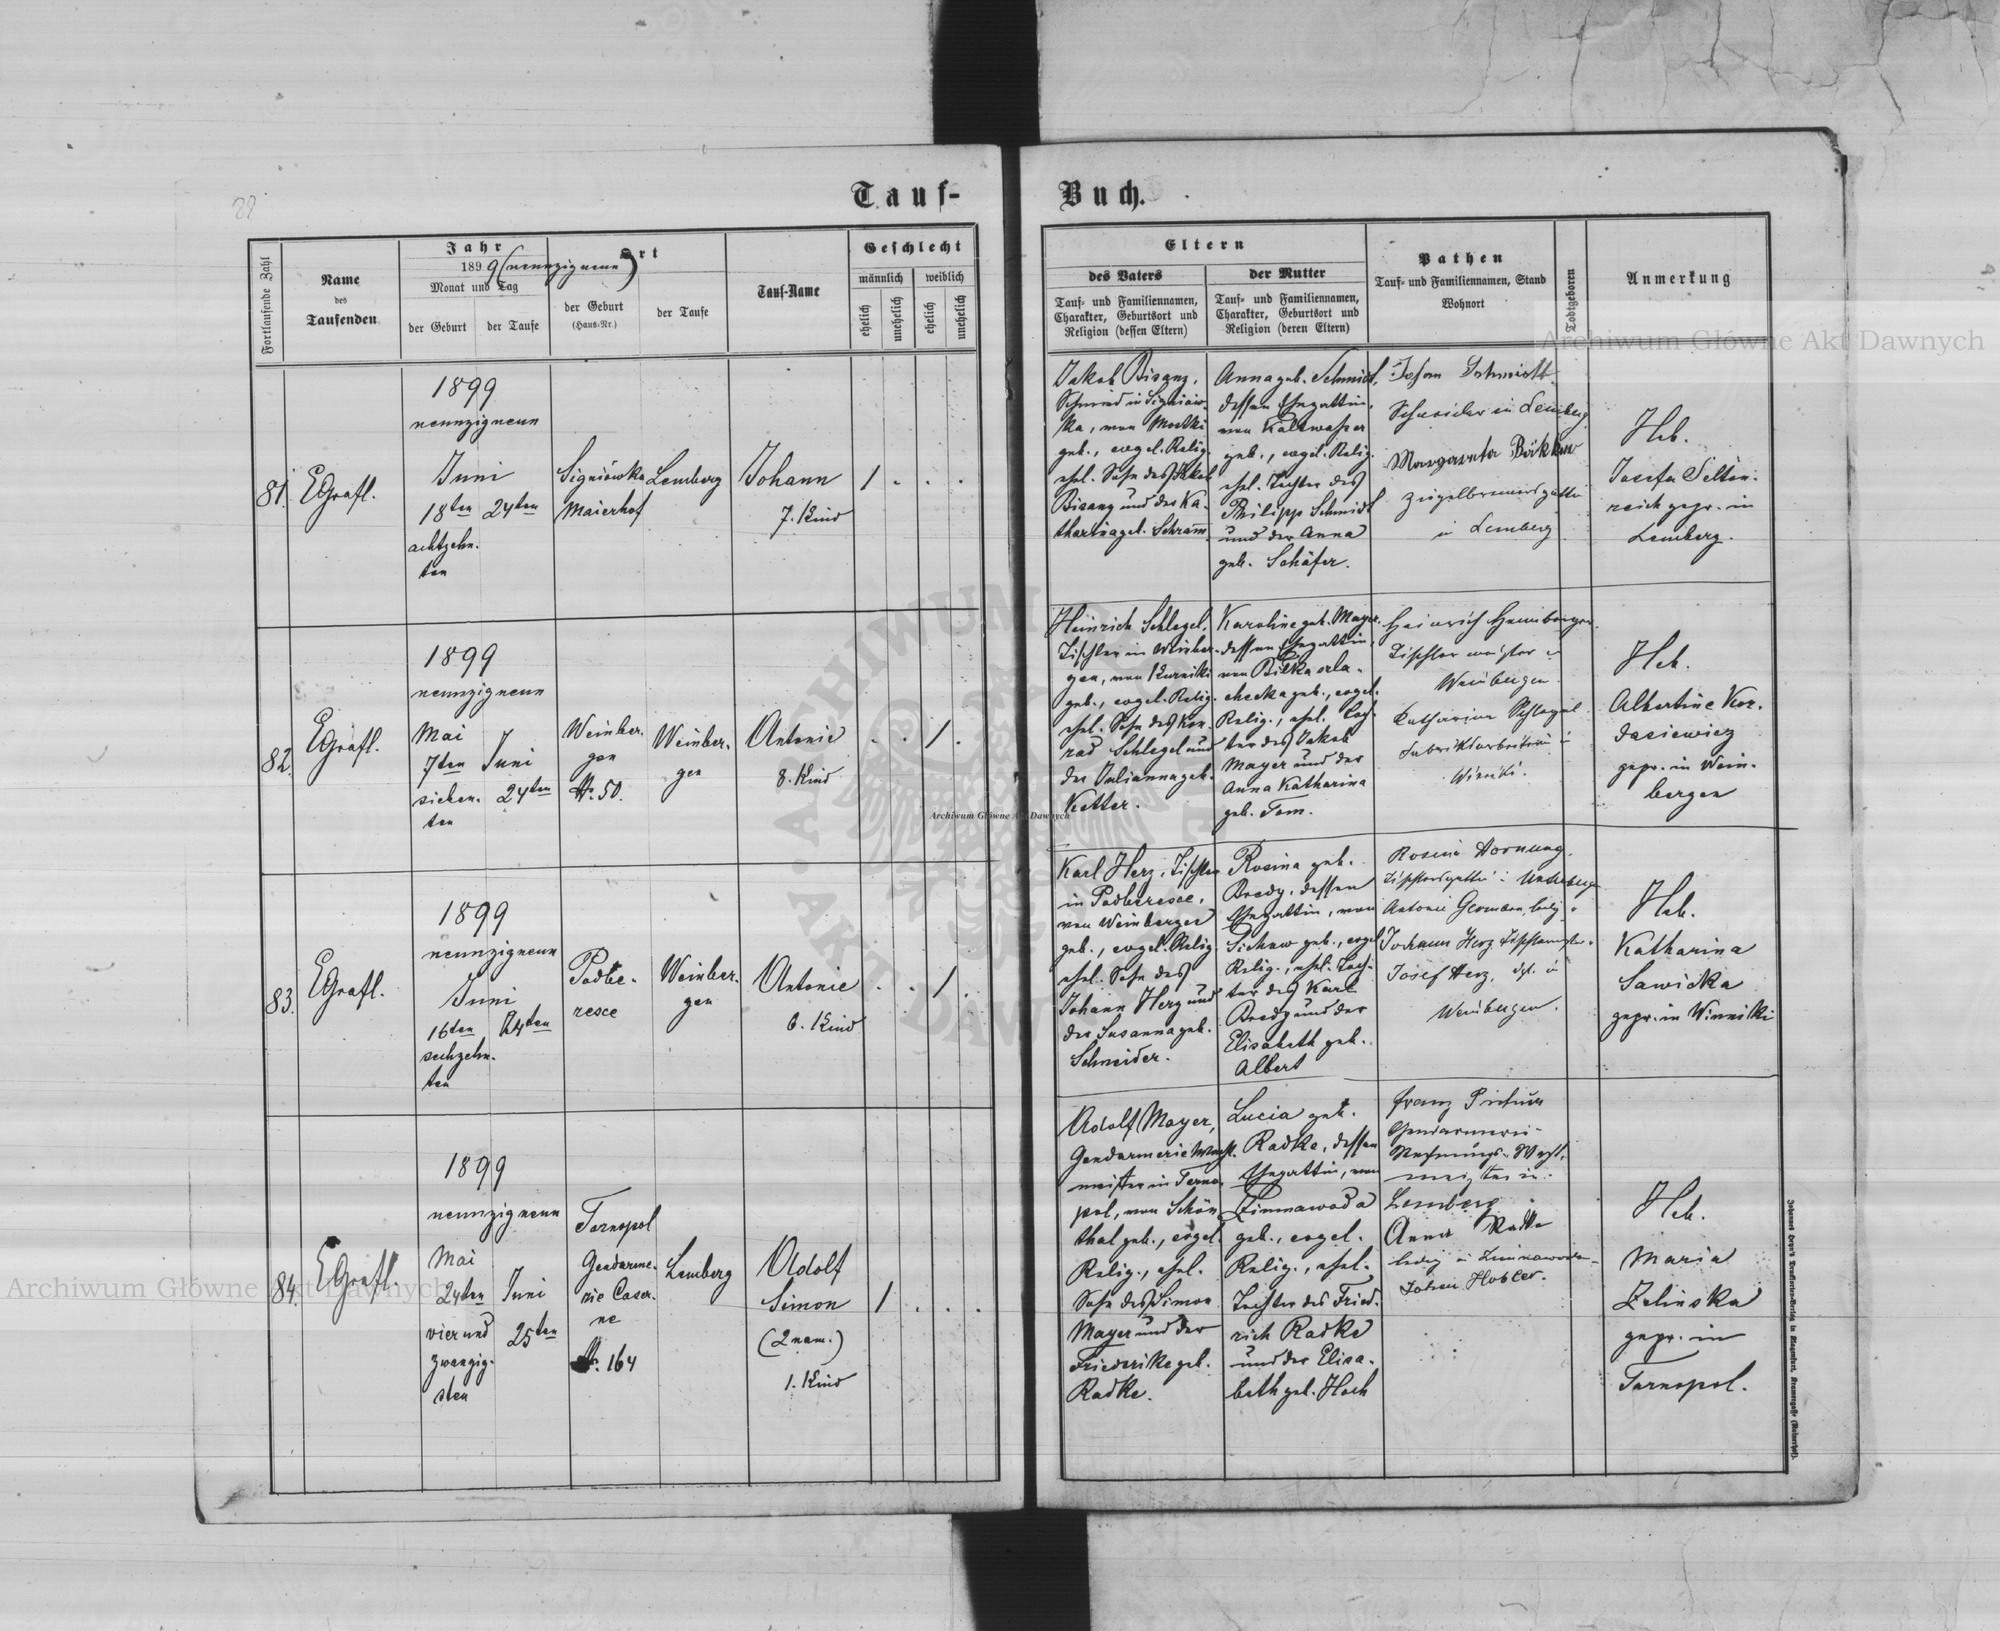 Tauf-
Buch.
Fortlaufende Zahl
Name
des
Taufenden
Jahr
1899 (neunzigneun)
Monat und Tag
der Geburt
der Taufe
Ort
der Geburt
(Haus-Nr.)
der Taufe
Tauf-Name
Geschlecht
männlich
weiblich
ehelich
unehelich
ehelich
unehelich
Eltern
des Vaters
Tauf- und Familiennamen,
Charakter, Geburtsort und
Religion (dessen Eltern)
der Mutter
Tauf- und Familiennamen,
Charakter, Geburtsort und
Religion (deren Eltern)
Pathen
Tauf- und Familiennamen, Stand
Wohnort
Todtgeboren
Anmerkung
81.
EGrafl.
1899
neunzigneun
Juni
18ten
achtzehn-
ten
24ten
Signiówka
Maierhof
Lemberg
Johann
7. Kind
1 . . .
Jakob Bisanz,
Schmied in Signiów-
ka, von Mostki
geb., evgel. Relig.
ehel. Sohn des Jakob
Bisanz und der Ka-
tharina geb. Schram
Anna geb. Schmidt,
dessen Ehegattin,
von Kaltwasser
geb., evgel. Relig.
ehel. Tochter des
Philipp Schmidt
und der Anna
geb. Schäfer.
Johann Schmidt
Schneider in Lemberg
Margareta
in Lemberg
Heb.
Josefa
gepr. in
Lemberg.
82.
EGrafl.
1899
neunzigneun
Mai
7ten
sieben-
ten
Juni
24ten
Weinber-
gen
Nr. 50.
Weinber-
gen
Antonie
8. Kind
. . 1 .
Heinrich Schlegel,
Tischler in Weinber-
gen, von Kurniki
geb., evgel. Relig.
ehel. Sohn des Kon-
rad Schlegel und
der Julianna geb.
Ketter.
Karoline geb. Mayer,
dessen Ehegattin,
von Bilka szla-
checka geb., evgel.
Relig., ehel. Toch-
ter des Jakob
Mayer und der
Anna Katharina
geb. Tom.
Heinrich Hemberger
Tischlermeister in
Weinbergen.
Katharina Schlegel
Fabriksarbeiterin in
Winniki.
Heb.
Albertine Kor-
dasiewicz
gepr. in Wein-
bergen
83.
EGrafl.
1899
neunzigneun
Juni
16ten
sechzehn-
ten
24ten
Podbe-
resce
Weinber-
gen
Antonie
6. Kind
. . 1 .
Karl Herz, Tischler
in Podberesce,
von Weinbergen
geb., evgel. Relig.
ehel. Sohn des
Johann Herz und
der Susanna geb.
Schneider.
Rosina geb.
Bredy, dessen
Ehegattin, von
Sichow geb., evgel.
Relig., ehel. Toch-
ter des Karl
Bredy und der
Elisabeth geb.
Albert
Rosina Hornung,
Tischlersgattin in Unterbergen
Antonie German, ledig
Johann Herz Tischlermeister
Josef Herz, in
Weinbergen.
Heb.
Katharina
Sawicka
gepr. in Winniki
84.
EGrafl.
1899
neunzigneun
Mai
24ten
vierund
zwanzig-
sten
Juni
25ten
Tarnopol
Gendarme-
rie Caser-
ne
Nr. 164
Lemberg
Adolf
Simon
(2 nam.)
1. Kind
1 . . .
Adolf Mayer,
Gendarmerie Wacht-
meister in Tarno-
pol, von Schön-
thal geb., evgel.
Relig., ehel.
Sohn des Simon
Mayer und der
Friederike geb.
Radke.
Lucia geb.
Radke, dessen
Ehegattin, von
Zimnawoda
geb., evgel.
Relig., ehel.
Tochter des Fried-
rich Radke
und der Elisa-
beth geb. Hoch
Franz
Gendarmerie-
Rechnungs-Wacht-
meister in
Lemberg
Anna Radke
ledig in Zimnawoda
Heb.
Maria
Zelinska
gepr. in
Tarnopol.
Archiwum Główne Akt Dawnych
Archiwum Główne Akt Dawnych
Archiwum Główne Akt Dawnych